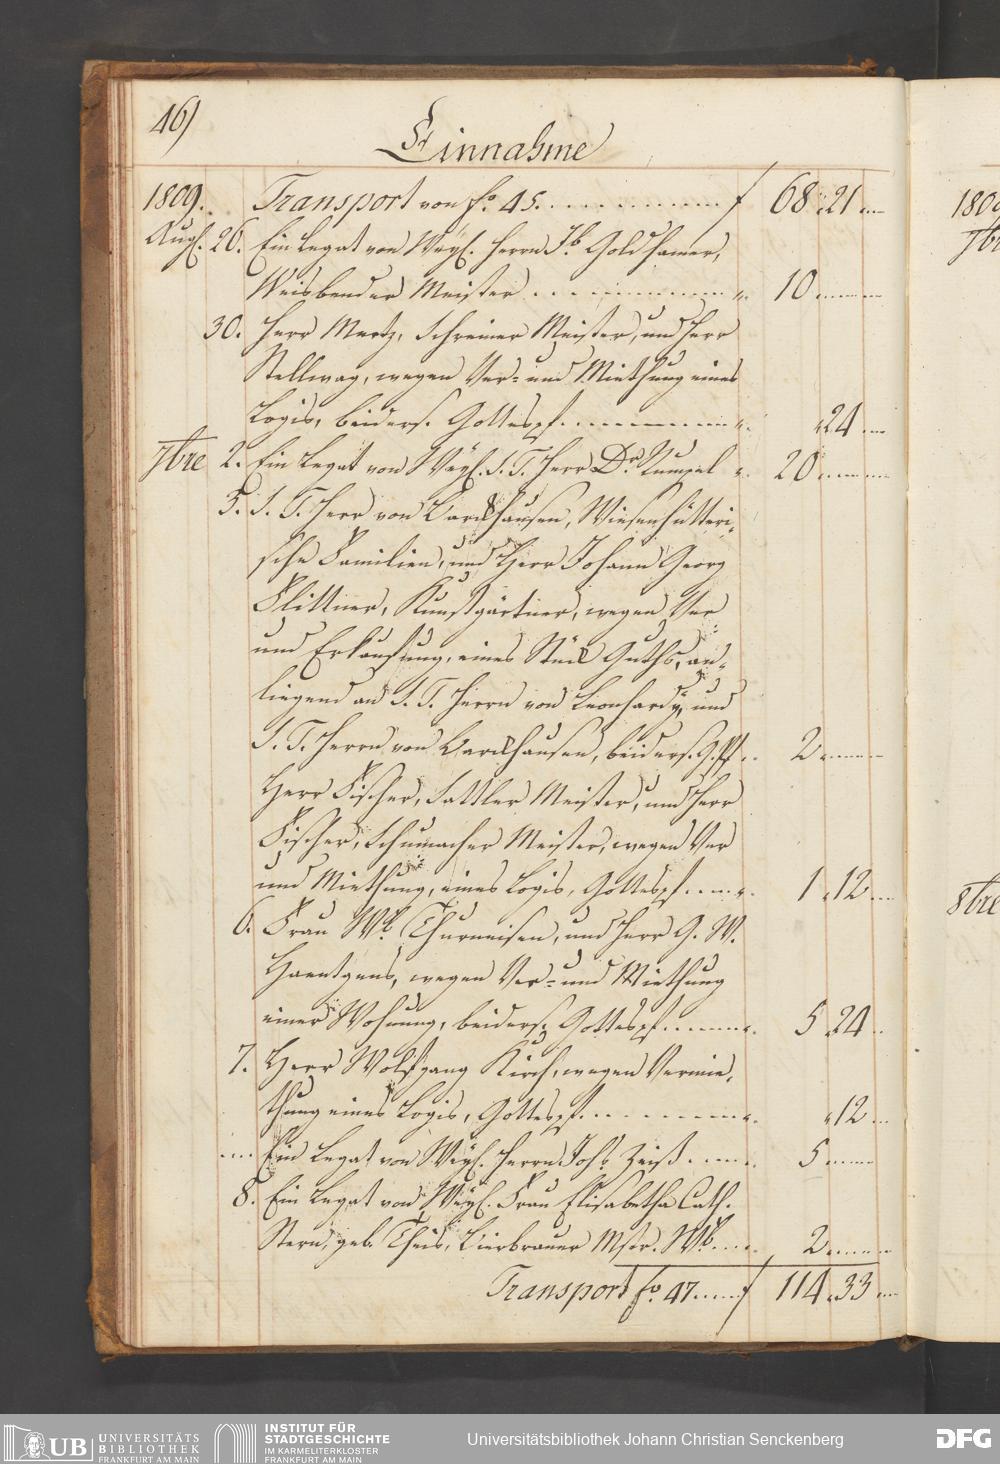 46)
Einnahme
1809. Transport von fo. 45. f 68 „ 21
Augt. 26. Ein Legat von Weyl. Herrn Jb. Goldhamer,
Weisbender Meister 10
30. Herr Mertz, Schreiner Meister, und Herr
Stellwag, wegen Ver- und Miethung eines
Logis, beiders. Gottespf. „ 24
7bre 2. Ein Legat von Weyl. S. T. Herr Dr. Rumpel 20
5. S. T. Herr von Barckhausen, Wiesenhütteri-
sche Familien, und Herr Johann Georg
Plittner, Kunstgärtner, wegen Ver
und Erkaufung, eines Stück Guths, an-
liegend an S. T. Herrn von Leonhardy, und
S. T. Herrn von Barckhausen, beiders. G.Pf. 2
Herr Fischer, Sattler Meister, und Herr
Fischer, Schumacher Meister, wegen Ver
und Miethung, eines Logis, Gottespf. 1 „ 12
6. Frau Wb. Thurneisen, und Herr G. W.
Haentgens, wegen Ver- und Miethung
einer Wohnung, beiders. Gottespf. 5 „ 24
7. Herr Wolfgang Kirch, wegen Vermie-
thung eines Logis, Gottespf. „ 12
Ein Legat von Weyl. Herrn Johs. Zeiß 5
8. Ein Legat von Weyl. Frau Elisabetha Cath.
Stern, geb. Theis, Bierbrauer Mstr. Wb. 2
Transport fo. 47 f 114 „ 33
180
7br
8bre
UB UNIVERSITÄTS
BIBLIOTHEK
FRANKFURT AM MAIN
INSTITUT FÜR
STADTGESCHICHTE
IM KARMELITERKLOSTER
FRANKFURT AM MAIN
Universitätsbibliothek Johann Christian Senckenberg
DFG